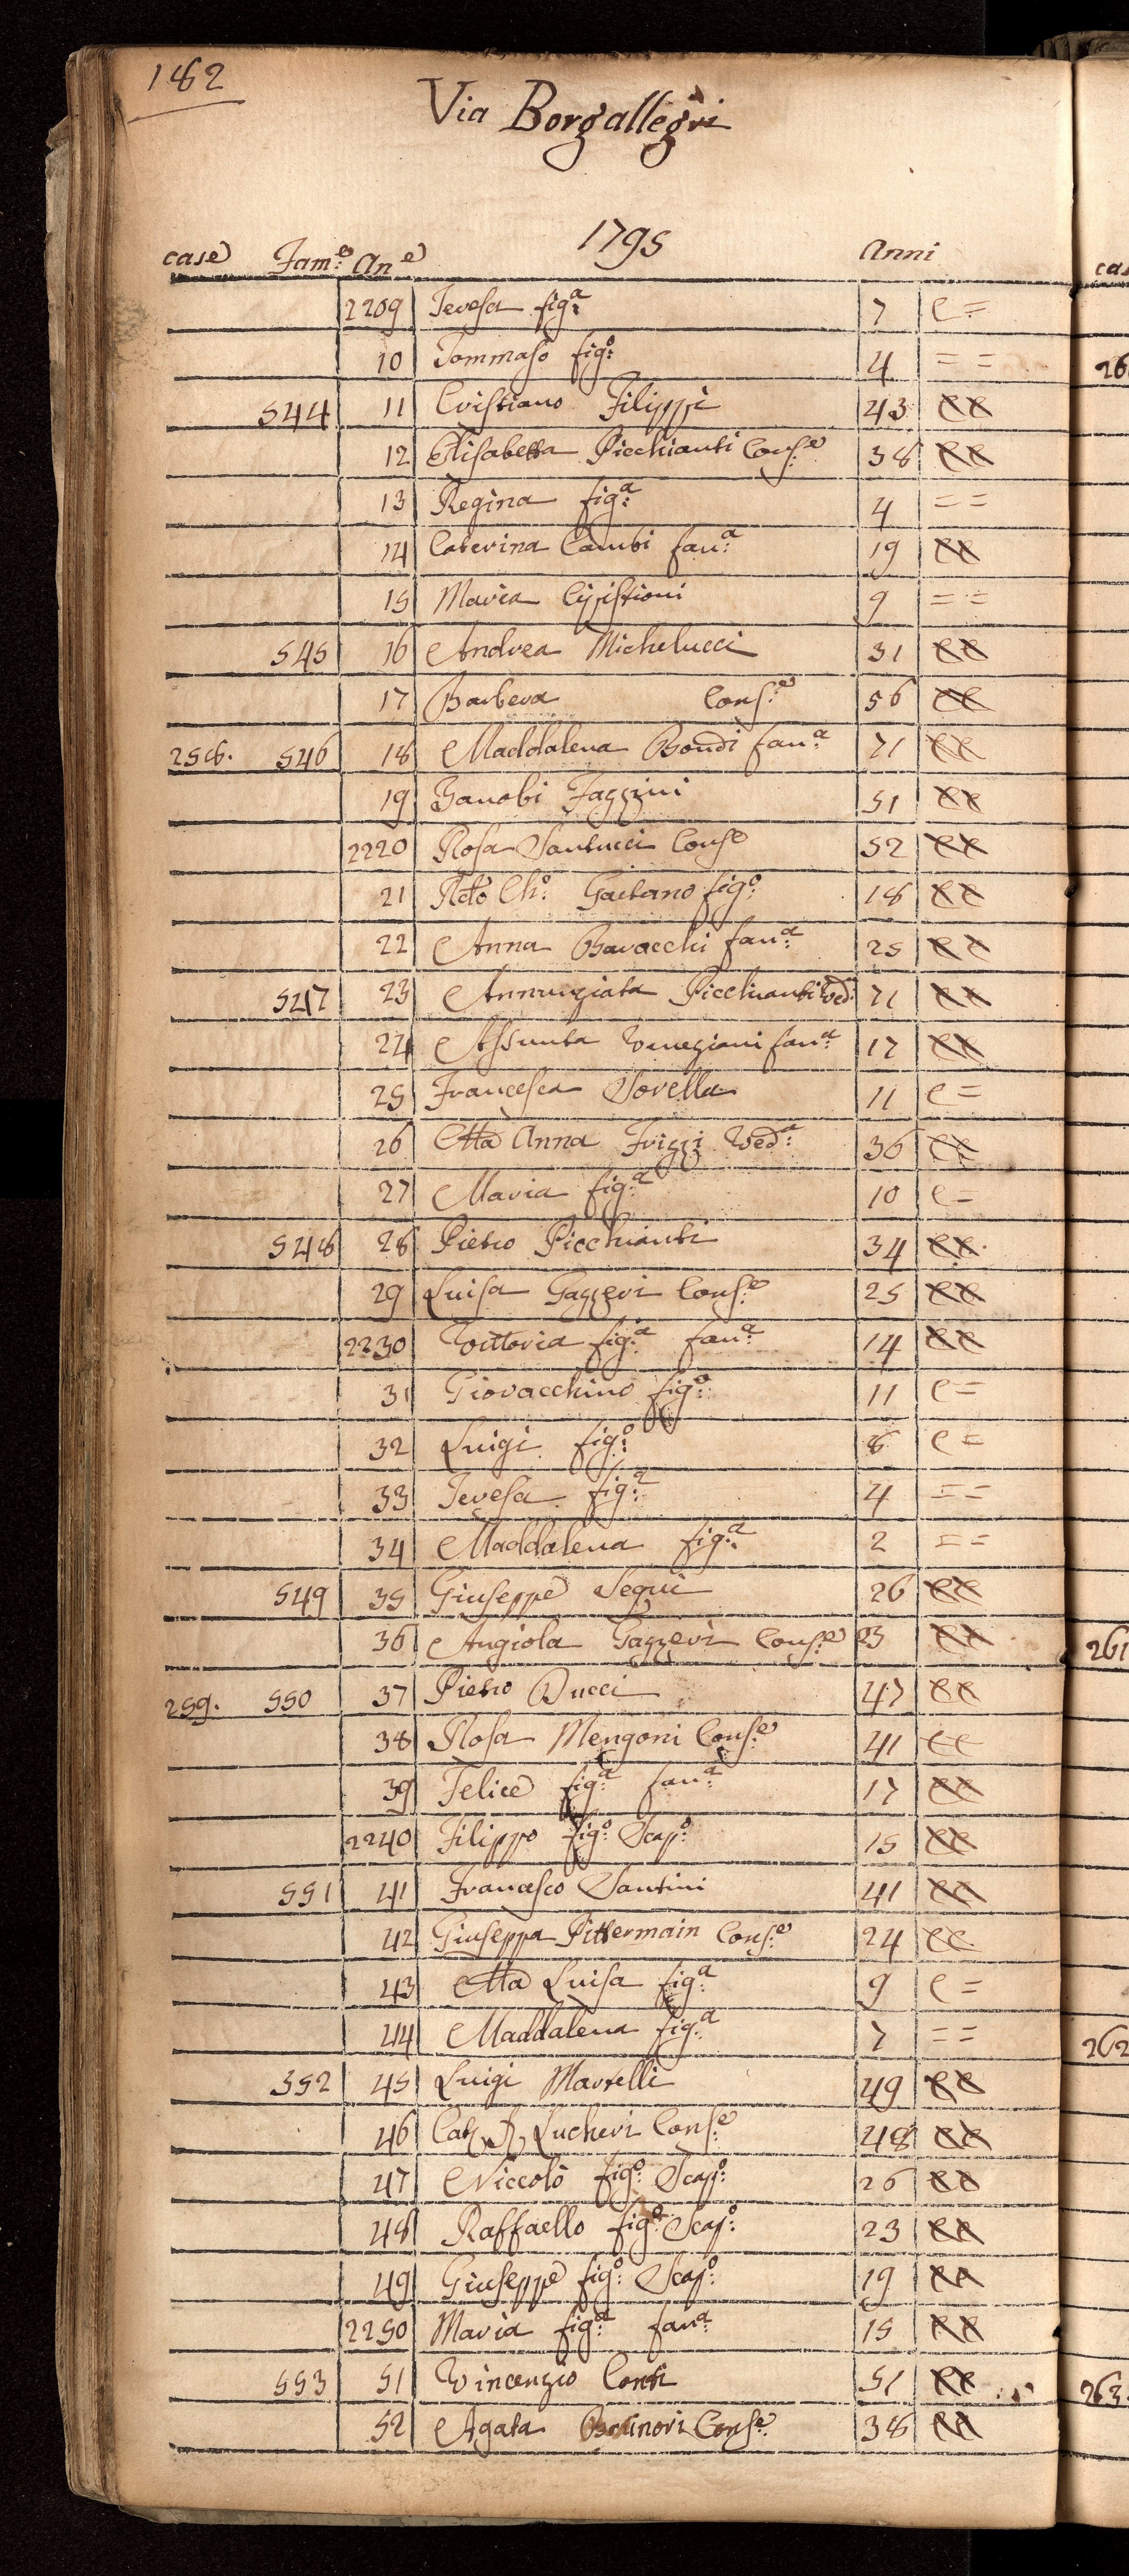 182
Via Borgallegri
1795
case Fam:e An:e Anni
2209 Teresa fig:a 7 e =
10 Tommaso fig:o 4 = =
544 11 Cristiano Filippi 43 ee
12 Elisabetta Picchianti Cons:e 38 ee
13 Regina fig:a 4 = =
14 Caterina Cambi fan:a 19 ee
15 Maria 9 = =
545 16 Andrea Michelucci 31 ee
17 Barbera Cons:e 56 ee
258. 546 18 Maddalena Bondi fan:a 71 ee
19 Ganobi Fazzini 51 ee
2220 Rosa Santucci Cons:e 52 ee
21 Ch:o Gaetano fig:o 18 ee
22 Anna Baracchi fan:a 25 ee
547 23 Annunziata Picchianti Ved: 71 ee
24 Assunta Veneziani fan:a 17 ee
25 Francesca Sorella 11 e =
26 Mta Anna Frizzi Ved:a 36 ee
27 Maria fig:a 10 e =
548 28 Pietro Picchianti 34 ee
29 Luisa Gazzeri Cons:e 25 ee
2230 Vittoria fig:a fan:a 14 ee
31 Giovacchino fig:o 11 e =
32 Luigi fig:o 8 e =
33 Teresa fig:a 4 = =
34 Maddalena fig:a 2 = =
549 35 Giuseppe Segui 26 ee
36 Angiola Gazzeri Cons:e 23 ee
259. 550 37 Pietro Ducci 47 ee
38 Rosa Mengoni Cons:e 41 ee
39 Felice fig:a fan:a 17 ee
2240 Filippo fig:o Scap:o 15 ee
551 41 Francesco Santini 41 ee
42 Giuseppa Pittermain Cons:e 24 ee
43 Mta Luisa fig:a 9 e =
44 Maddalena fig:a 7 = =
352 45 Luigi Martelli 49 ee
46 Lucheri Cons:e 48 ee
47 Niccolò fig:o Scap:o 26 ee
48 Raffaello fig:o Scap:o 23 ee
49 Giuseppe fig:o Scap:o 19 ee
2250 Maria fig:a fan:a 15 ee
553 51 Vincenzio Conti 51 ee
52 Agata Cons:e 38 ee
261
262
263